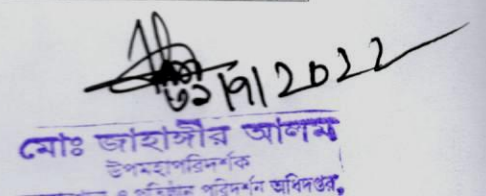 ৩১/৭/২০২২
মোঃ জাহাঙ্গীর আলম
উপমহাপরিদর্শক
ও প্রতিষ্ঠান পরিদর্শন অধিদপ্তর,